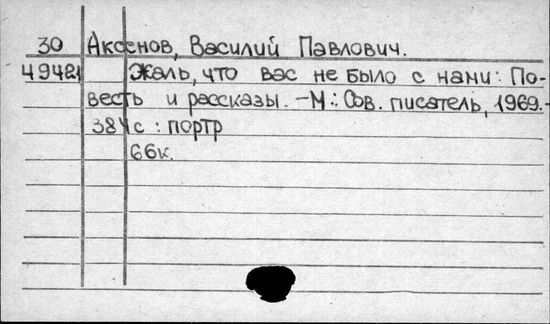 30 Аксенов, Василий Павлович.
49421 Жаль, что вас не было с нами: По-
весть и рассказы. – М.: Сов. писатель, 1969.-
384 с : портр
66к.